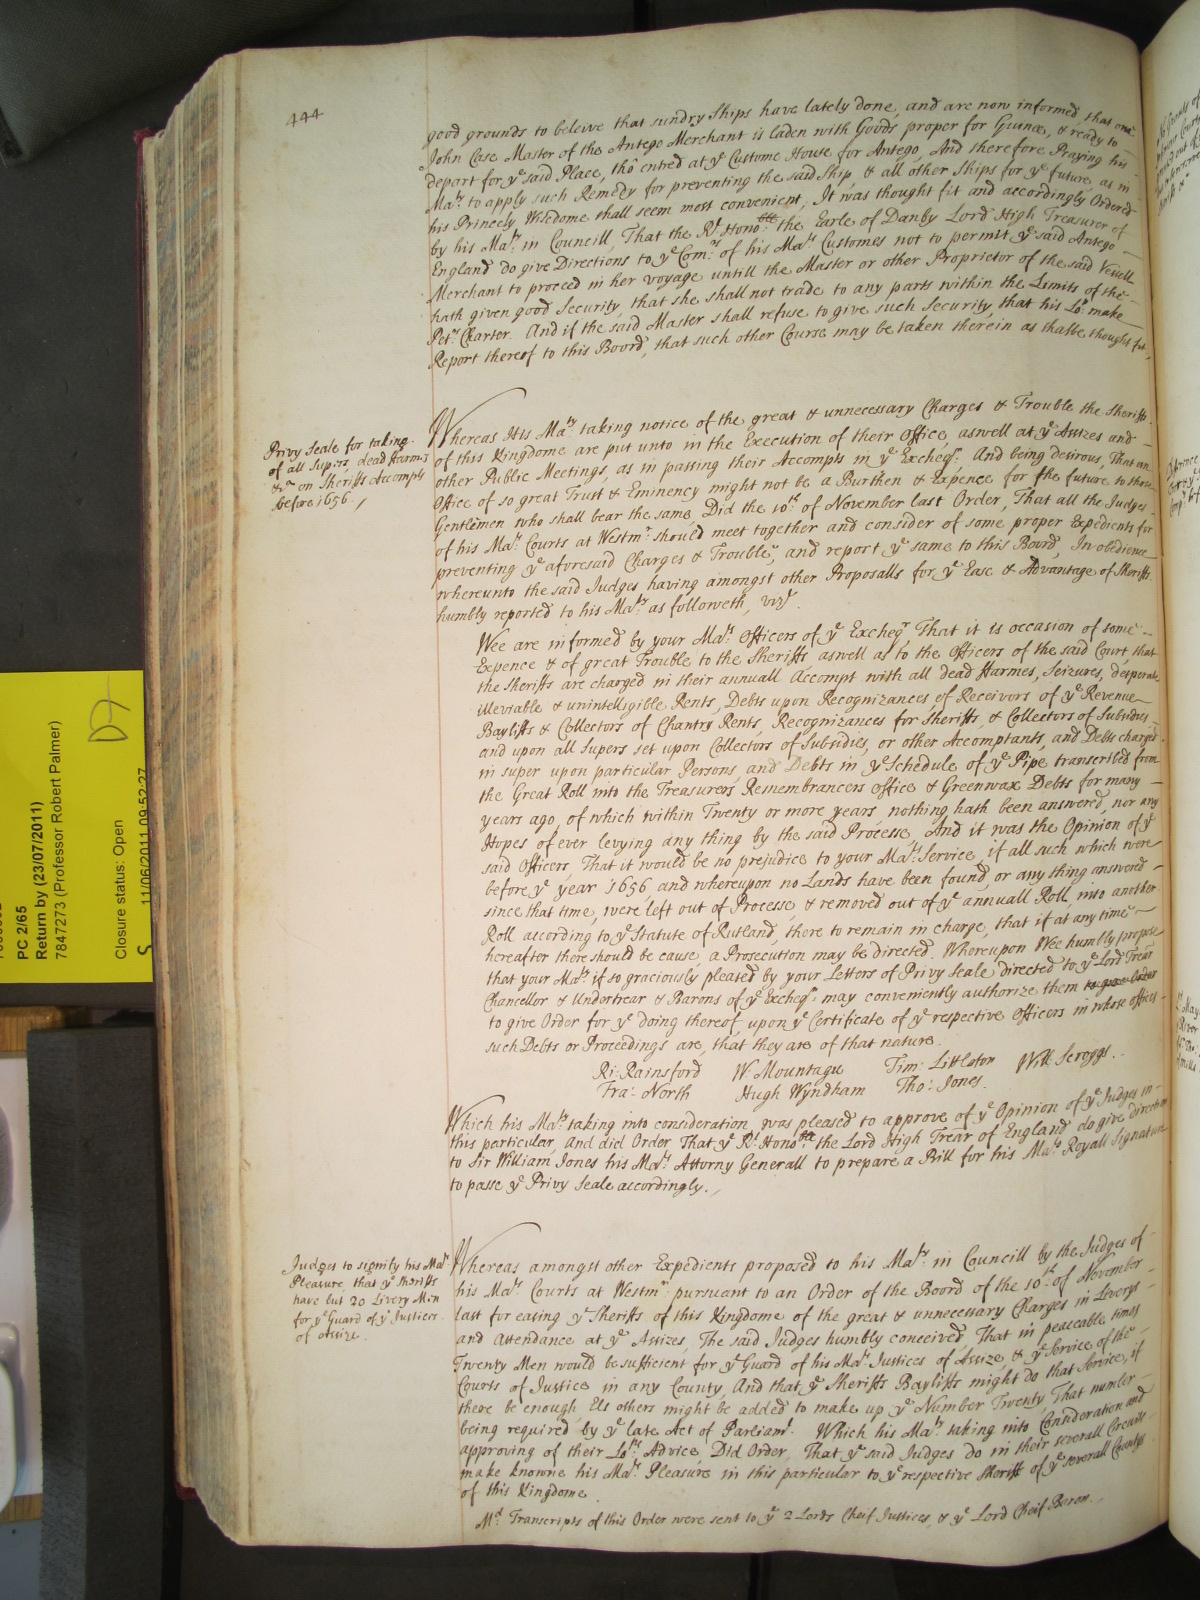 444
good grounds to beleive that sundry Ships have lately done, and are now informed, that one
John Case Master of the Antego Merchant is laden with Goods proper for Guinea, & ready to
depart for yᵉ said Place, thô entred at yᵉ Custome House for Antego, And therefore Praying his
Maᵗʸ to apply such Remedy for preventing the said Ship & all other Ships for yᵉ future, as in
his Princely Wisdome shall seem most convenient, It was thought fit and accordingly Ordered
by his Maᵗʸ in Councill, That the Rᵗ Honoᵇˡᵉ the Earle of Danby Lord High Treasurer of
England do give Directions to yᵉ Comʳˢ of his Maᵗˢ Customes not to permit yᵉ said Antego
Merchant to proceed in her voyage untill the Master or other Proprietor of the said Vessell
hath given good Security, that she shall not trade to any parts within the Limits of the
Petʳˢ Charter. And if the said Master shall refuse to give such Security, that his Loᵖ make
Report thereof to this Board, that such other Course may be taken therein as shalbe thought fit.
Privy Seale for taking
of all Supers, dead farmes
&ᶜᵃ on Sheriffs Accompts
before 1656.
Whereas His Maᵗʸ taking notice of the great & unnecessary Charges & Trouble the Sheriffs
of this Kingdome are put unto in the Execution of their Office, aswell at yᵉ Assizes and
other Public Meetings, as in passing their Accompts in yᵉ Excheqʳ. And being desirous, That an
Office of so great Trust & Eminency might not be a Burthen & Expence for the future to those
Gentlemen who shall bear the same, Did the 10ᵗʰ of November last Order, That all the Judges
of his Maᵗˢ Courts at Westmʳ should meet together and consider of some proper Expedients for
preventing yᵉ aforesaid Charges & Trouble, and report yᵉ same to this Board, In obedience
whereunto the said Judges, having amongst other Proposalls for yᵉ Ease & Advantage of Sheriffs
humbly reported to his Maᵗʸ as followeth, vizᵗ.
Wee are informed by your Maᵗˢ Officers of yᵉ Excheqʳ That it is occasion of some
Expence & of great Trouble to the Sheriffs aswell as to the Officers of the said Court, that
the Sheriffs are charged in their annuall Accompt with all dead Farmes, Seizures, desperate
illeviable & unintelligible Rents, Debts upon Recognizances of Receivors of yᵉ Revenue
Bayliffs & Collectors of Chantry Rents, Recognizances for Sheriffs, & Collectors of Subsidies
and upon all Supers set upon Collectors of Subsidies, or other Accomptants, and Debts charged
in super upon particular Persons, and Debts in yᵉ Schedule of yᵉ Pipe transcribed from
the Great Roll into the Treasurers Remembrancers Office & Greenwax Debts for many
years ago, of which within Twenty or more years, nothing hath been answered, nor any
Hopes of ever levying any thing by the said Processe, And it was the Opinion of yᵉ
said Officers, That it would be no prejudice to your Maᵗˢ Service, if all such which were
before yᵉ year 1656 and whereupon no Lands have been found, or any thing answered
since that time, were left out of Processe & removed out of yᵉ annuall Roll, into another
Roll according to yᵉ Statute of Rutland, there to remain in charge, that if at any time
hereafter there should be cause, a Prosecution may be directed. Whereupon Wee humbly propose
that your Maᵗʸ if so graciously pleased by your Letters of Privy Seale directed to yᵉ Lord Treãr
Chancellor & Undertrear & Barons of yᵉ Excheqʳ may conveniently authorize them to give Order
to give Order for yᵉ doing thereof, upon yᵉ Certificate of yᵉ respective Officers in whose offices
such Debts or Proceedings are, that they are of that nature.
Ri: Rainsford W Mountagu Tim: Littleton Will Scroggs.
Fra: North Hugh Wyndham Tho: Jones.
Which his Maᵗʸ taking into consideration, was pleased to approve of yᵉ Opinion of yᵉ Judges in
this particular, And did Order, That yᵉ Rᵗ Honoᵇˡᵉ the Lord High Treãr of England do give direction
to Sir William Jones his Maᵗˢ Attorny Generall to prepare a Bill for his Maᵗˢ Royall Signature
to passe yᵉ Privy Seale accordingly.
Judges to signify his Maᵗˢ
Pleasure, that yᵉ Sheriffs
have but 20 Livery Men
for yᵉ Guard of yᵉ Justices
of Assize.
Whereas amongst other Expedients proposed to his Maᵗʸ in Councill by the Judges of
his Maᵗˢ Courts at Westmʳ pursuant to an Order of the Board of the 10ᵗʰ of November
last for easing yᵉ Sheriffs of this Kingdome of the great & unnecessary Charges in Leverys
and Attendance at yᵉ Assizes, The said Judges humbly conceived, That in peaceable times
Twenty Men would be sufficient for yᵉ Guard of his Maᵗˢ Justices of Assize, & yᵉ Service of the
Courts of Justice in any County, And that yᵉ Sheriffs Bayliffs might do that Service, if
there be enough, Els others might be added to make up yᵉ Number Twenty, That number
being required by yᵉ late Act of Parliamᵗ. Which his Maᵗʸ taking into Consideration and
approving of their Loᵖˢ Advice, Did Order, That yᵉ said Judges do in their severall Circuits
make knowne his Maᵗˢ Pleasure in this particular to yᵉ respective Sheriffs of yᵉ severall Countys
of this Kingdome.
Mᵈ Transcripts of this Order were sent to yᵉ 2 Lords Cheif Justices, & yᵉ Lord Cheif Baron.
PC 2/65
Return by (23/07/2011)
7847273 (Professor Robert Palmer)
Closure status: Open
11/06/2011 09:52:27
S
D7